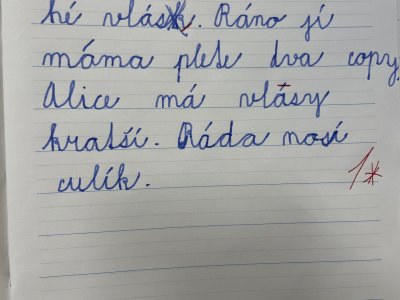 hé vlásk. Ráno jí
máma plete dva copy.
Alice má vlásy
kratší. Ráda nosí
culík.
1*